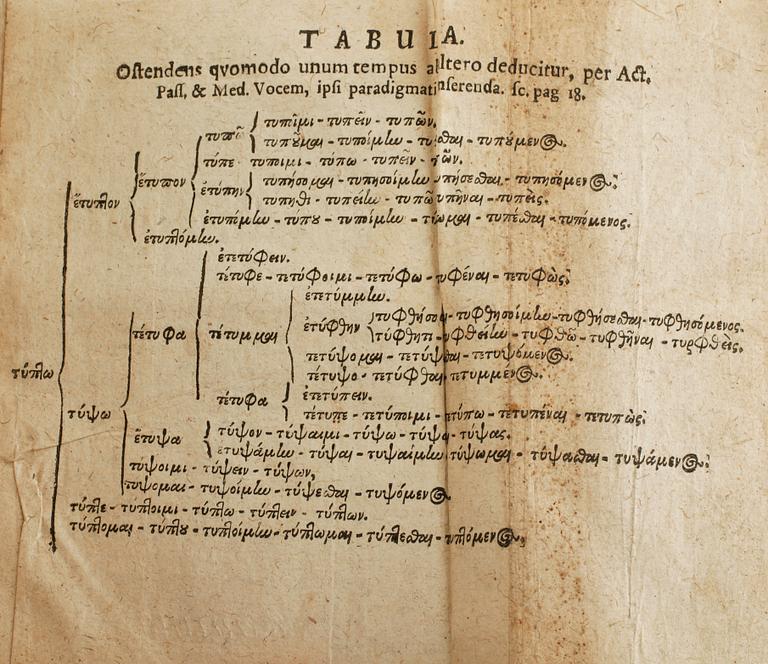 TABULA.
Ostendens qvomodo unum tempus altero deducitur, per Act.
Pass. & Med. Vocem, ipsi paradigmati inserenda. sc. pag 18.
τυποῖμι - τυπεῖν - τυπῶν.
τυπῶ
τυποῦμαι - τυποίμην - τυπεῖσθαι - τυπούμενος.
τύπε τυποιμι - τύπω - τυπεῖν - τυπών.
ἔτυπτον ἔτυπον ἐτύπην τυπήσομαι - τυπησοίμην τυπήσεσθαι - τυπησόμενος.
τυπηθι - τυπείην - τυπῶ τυπῆναι - τυπείς.
ἐτυπόμην - τυποῦ - τυποίμην - τύπωμαι - τυπέσθαι - τυπόμενος.
ἐτυπτόμην.
ἐτετύφειν.
τέτυφε - τετύφοιμι - τετύφω - τυφέναι - τετυφώς.
ἐτετύμμην.
ἐτύφθην τυφθήσομαι - τυφθησοίμην - τυφθήσεσθαι - τυφθησόμενος.
τύφθητι - τυφθείην - τυφθῶ - τυφθῆναι - τυφθείς.
τέτυφα τέτυμμαι
τετύψομαι - τετύψεσθαι - τετυψόμενος.
τέτυψο - τετύφθαι τετυμμένος.
τύπτω
ἐτετύπειν.
τέτυπα
τέτυπε - τετύποιμι - τετύπω - τετυπέναι - τετυπώς.
τύψω
τύψον - τύψαιμι - τύψω - τύψαι - τύψας.
ἔτυψα
ἐτυψάμην - τύψαι - τυψαίμην τύψωμαι - τύψασθαι - τυψάμενος.
τυψοιμι - τύψειν - τύψων,
τύψομαι - τυψοίμην - τύψεσθαι - τυψόμενος.
τύπτε - τυπτοιμι - τύπτω - τύπτειν - τύπτων.
τύπτομαι - τύπτου - τυπτοίμην - τύπτωμαι - τύπτεσθαι - τυπτόμενος.